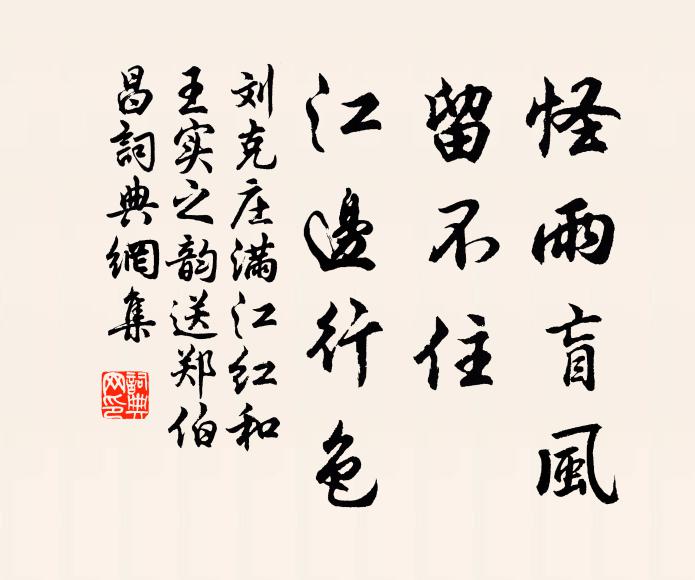 怪雨盲風
留不住
江邊行色
刘克庄满江红和
王实之韵送郑伯
昌詞典網集
詞典
网印